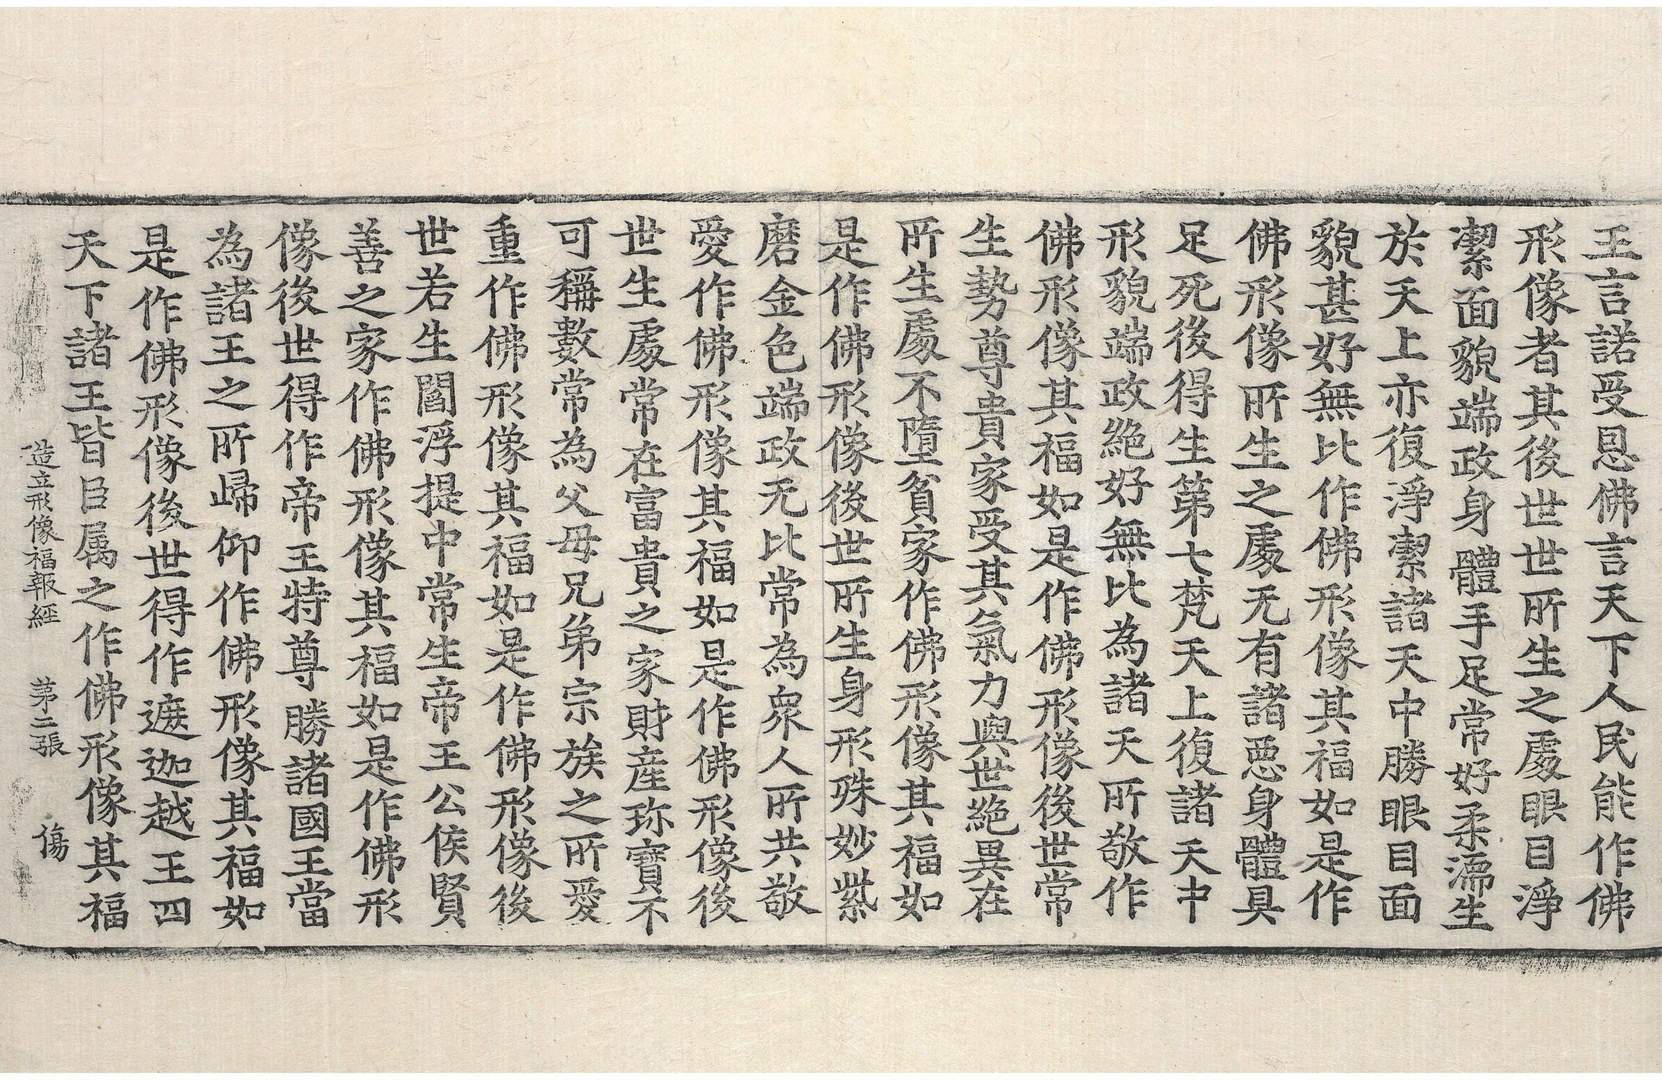 王言諾受恩佛言天下人民能作佛
形像者其後世世所生之處眼目淨
潔面貌端政身體手足常好柔濡生
於天上亦復淨潔諸天中勝眼目面
貌甚好無比作佛形像其福如是作
佛形像所生之處无有諸惡身體具
足死後得生第七梵天上復諸天中
形貌端政絕好無比為諸天所敬作
佛形像其福如是作佛形像後世常
生勢尊貴家受其氣力與世絕異在
所生處不墮貧家作佛形像其福如
是作佛形像後世所生身形殊妙紫
磨金色端政无比常為衆人所共敬
愛作佛形像其福如是作佛形像後
世生處常在富貴之家財産珎寶不
可稱數常為父母兄弟宗族之所愛
重作佛形像其福如是作佛形像後
世若生閻浮提中常生帝王公侯賢
善之家作佛形像其福如是作佛形
像後世得作帝王特尊勝諸國王當
為諸王之所歸仰作佛形像其福如
是作佛形像後世得作遮迦越王四
天下諸王皆臣属之作佛形像其福
造立形像福報經 第二張 傷